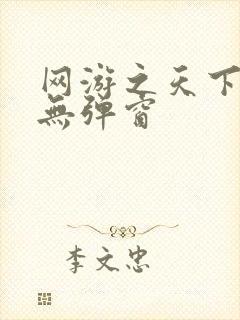 网游之天下
無弹窗
李文忠